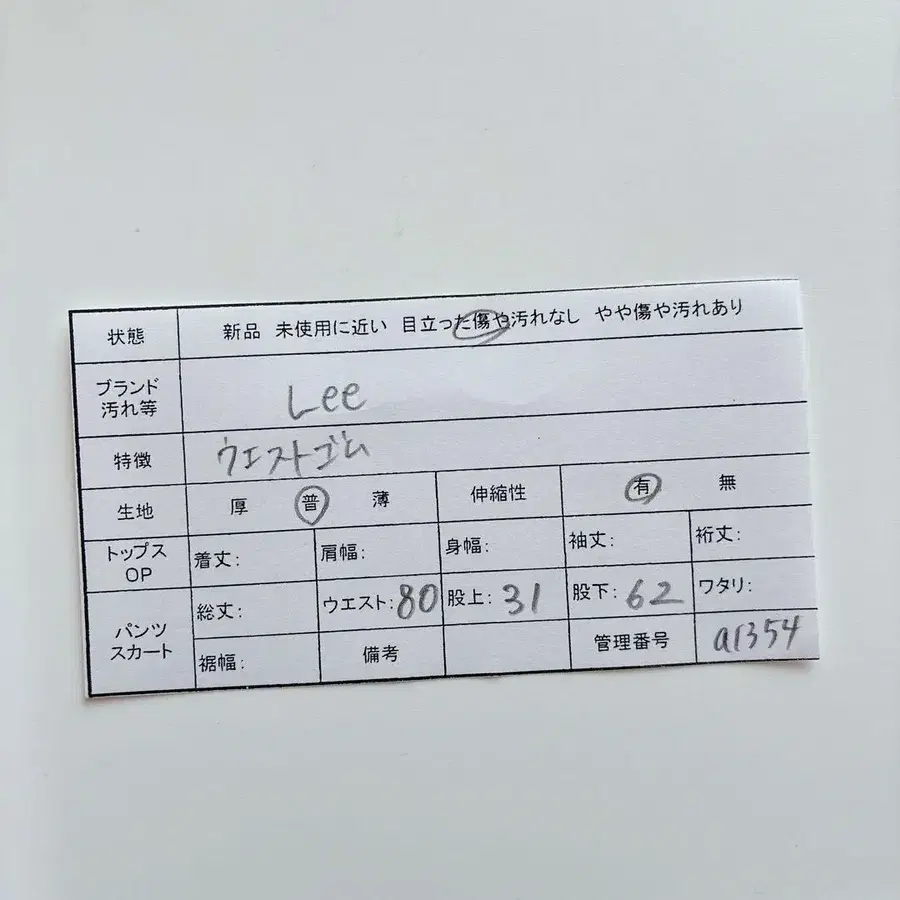 状態 新品 未使用に近い 目立った傷や汚れなし やや傷や汚れあり
ブランド
汚れ等 Lee
特徴 ウエストゴム
生地 厚 普 薄 伸縮性 有 無
トップス
OP 着丈: 肩幅: 身幅: 袖丈: 裄丈:
パンツ
スカート 総丈: ウエスト:80 股上:31 股下:62 ワタリ:
裾幅: 備考 管理番号 a1354